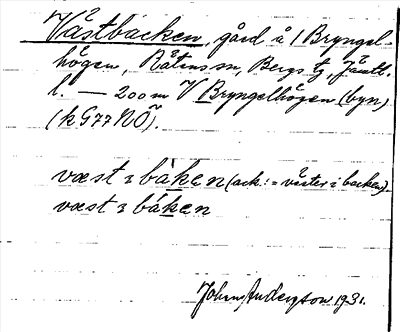 Västbacken, gård å 1 Bryngel-
högen, Rätans sn, Bergs tg, Jämtl.
l. — 200 m V Bryngelhögen (byn)
(k G77 NÖ).
væst ɜ båken (ack. = väster i backen).
væst ɜ båken
John Anderzson 1931.